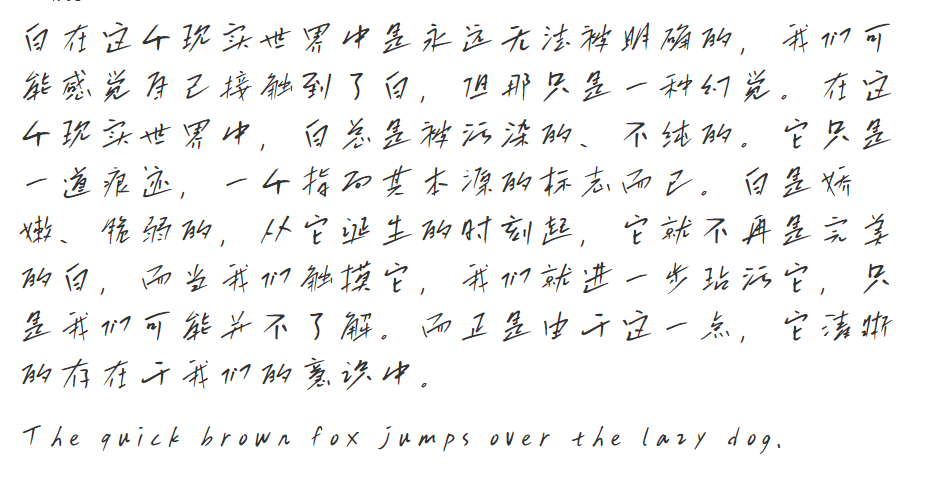 白在这个现实世界中是永远无法被明确的，我们可
能感觉自己接触到了白，但那只是一种幻觉。在这
个现实世界中，白总是被污染的、不纯的。它只是
一道痕迹，一个指向其本源的标志而已。白是娇
嫩、脆弱的，从它诞生的时刻起，它就不再是完美
的白，而当我们触摸它，我们就进一步玷污它，只
是我们可能并不了解。而正是由于这一点，它清晰
的存在于我们的意识中。
The quick brown fox jumps over the lazy dog.